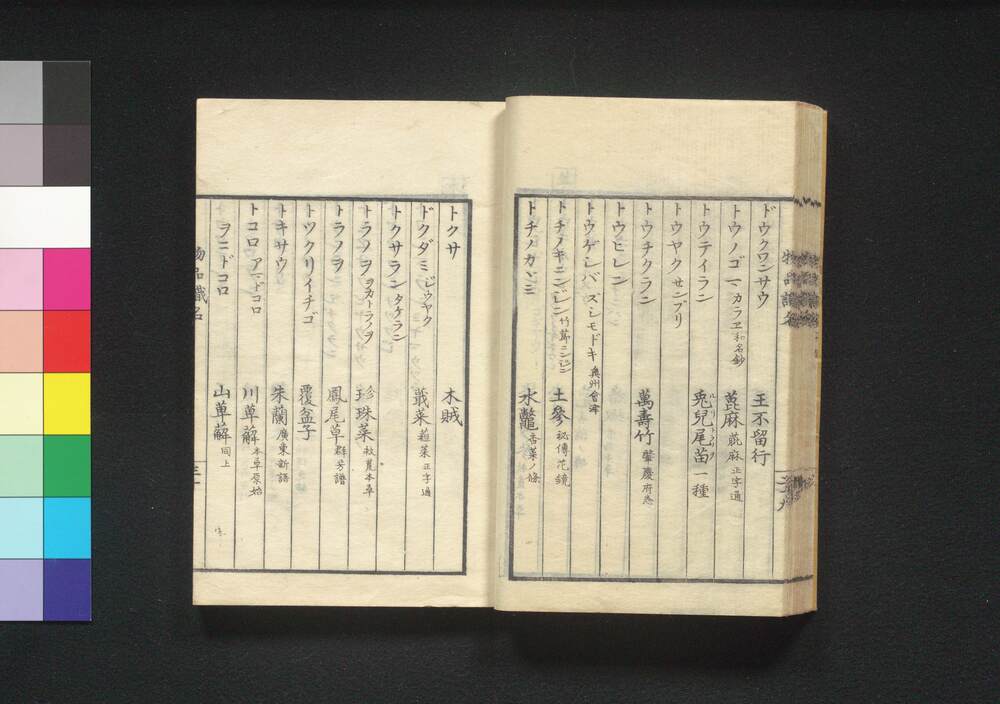 ドウクワンサウ 王不留行
トウノゴマ カラエ 和名鈔 蓖麻 萞麻 正字通
トウテイラン 兎兒尾苗 一種
トウヤク センブリ
トウチクラン 萬壽竹 肇慶府志
トウヒレン
トウゲシバ スシモドキ 奥州會津
トチノキニンジン 竹節ニンジン 土參 秘傳花鏡
トチノカヾミ 水鼈 杏葉ノ條
トクサ 木賊
ドクダミ ジウヤク 蕺菜 葅菜 正字通
トクサラン タケラン
トラノヲ ヲカトラノヲ 珍珠菜 救荒本草
トラノヲ 鳳尾草 群芳譜
トツクリイチゴ 覆盆子
トキサウ 朱蘭 廣東新語
トコロ アマドコロ 川萆薢 本草原始
ヲニドコロ 山萆薢 同上
物品識名